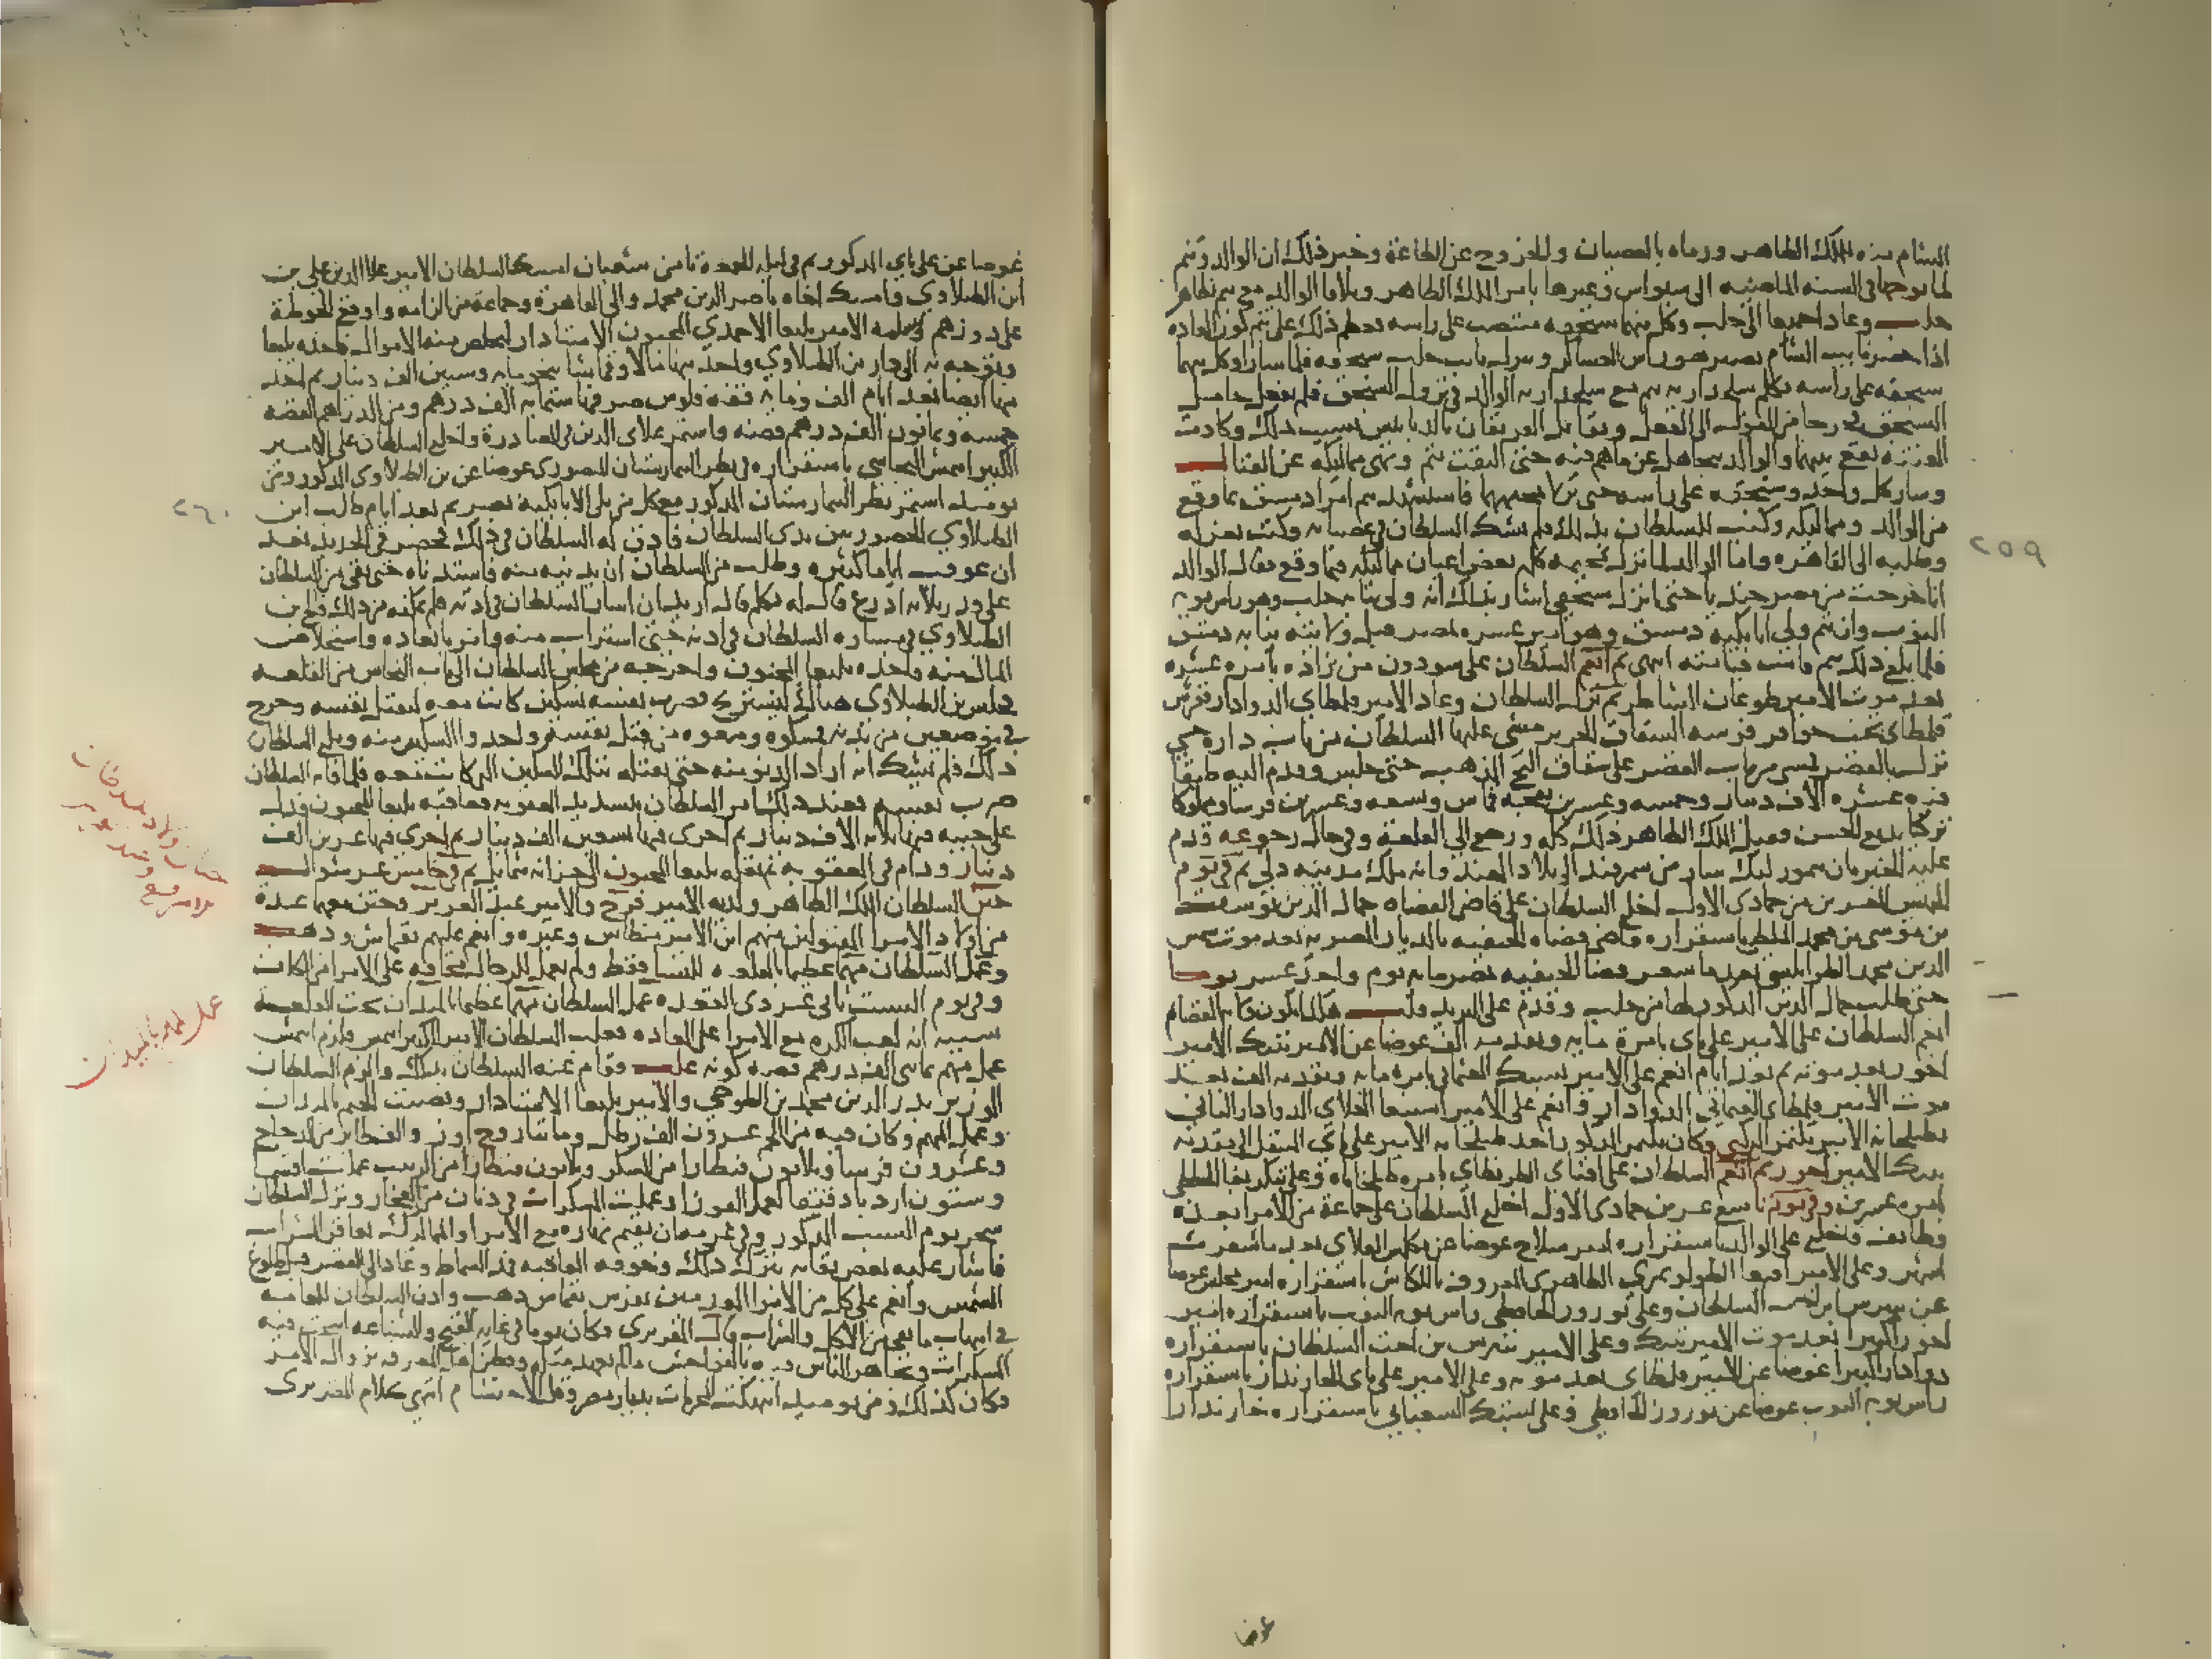 الشام منه الملك الظاهر ورماه بالعصيان والخروج عن الطاعة وخبر ذلك ان الوالد وتنم
لما توجها في السنة الماضية الى سيواس وغيرها بامر الملك الظاهر وتلاقا الوالد مع تنم بظاهر
حلب وعادا جميعا الى حلب وكل منهما سنجقه منتصب على راسه فعظم ذلك على تنم كون العادة
اذا حضر نايب الشام يصير هو راس العساكر وينزل نايب حلب سنجقه فلما سارا وكل منهما
سنجقه على راسه تكلم سلحدارية تنم مع سلحدارية الوالد في نزول السنجق فلم يفعل حامل
السنجق فخرجا من القول الى الفعل وتقاتل الفريقان بالدبابيس بسبب ذلك وكادت
الفتنة تقع بينهما والوالد يتجاهل عن ما هم فيه حتى التفت تنم ونهى مماليكه عن القتال
وسار كل واحد وسنجقه على راسه حتى نزلا بمخيمهما فاستشهد تنم امرا دمشق بما وقع
من الوالد ومماليكه وكتب للسلطان بذلك فلم يشك السلطان في عصيانه وكتب بعزله
وطلبه الى القاهرة واما الوالد لما نزل بمخيمه كلمه بعض اعيان مماليكه فيما وقع فقال الوالد
انا خرجت من مصر جنديا حتى انزل سنجقي اشار بذلك انه ولي نيابة حلب وهو راس نوبة
النوب وان تنم ولي اتابكية دمشق وهو امير عشرة بمصر قبل ولايته نيابة دمشق
فلما بلغ ذلك تنم قامت قيامته انتهى ثم انعم السلطان على سودون من زاده بامرة عشرة
بعد موت الامير طوغان الشاطر ثم نزل السلطان وعاد الامير قلمطاي الدوادار ففرش
قلمطاي تحت حوافر فرسه الشقاق الحرير مشى عليها السلطان من باب داره حتى
نزل بالقصر فمشى من باب القصر على شقاق النخ المذهب حتى جلس وقدم اليه طبقا
فيه عشرة الاف دينار وخمسة وعشرين بقجة قماش وتسعة وعشرين فرسا ومملوكا
تركيا بديع الحسن فقبل الملك الظاهر ذلك كله ورجع الى القلعة وفي حال رجوعه قدم
عليه الخبر بان تيمور لنك سار من سمرقند الى بلاد الهند وانه ملك مدينة دلي ثم في يوم
الخميس العشرين من جمادى الاولى اخلع السلطان على قاضي القضاة جمال الدين يوسف
بن موسى بن محمد الملطي باستقراره قاضي قضاة الحنفية بالديار المصرية بعد موت شمس
الدين محمد الطرابلسي بعدما شغر قضا الحنفية بمصر ماية يوم واحد عشر يوما
حتى طلب جمال الدين المذكور لها من حلب وقدم على البريد قلت هكذا يكون ولاية القضاء
انعم السلطان على الامير علي باي بامرة ماية وتقدمة الف عوضا عن الامير تنبك الامير
اخور بعد موته ثم بعد ايام انعم على الامير يشبك العثماني بامرة ماية وتقدمة الف بعد
موت الامير قلمطاي العثماني الدوادار وانعم على الامير اسنبغا العلاي الدوادار الثاني
بطبلخاناة الامير بكتمر الركني وكان بكتمر المذكور اخذ طبلخاناة الامير علي باي المنتقل الى تقدمة
تنبك الامير اخور ثم انعم السلطان على اقباي الطرنطاي بامرة طبلخاناة وعلى تنكر بغا الططري
بامرة عشرين وفي يوم تاسع عشرين جمادى الاولى اخلع السلطان على جماعة من الامرا بعدة
وظايف فاخلع على الوالد باستقراره امير سلاح عوضا عن بكلمش العلاي بعد ما شغرت
اشهر وعلى الامير اقبغا الطولوتمري الظاهري المعروف باللكاش باستقراره امير مجلس عوضا
عن بيبرس ابن اخت السلطان وعلى نوروز الحافظي راس نوبة النوب باستقراره امير
اخور كبيرا بعد موت الامير تنبك وعلى الامير بيبرس بن اخت السلطان باستقراره
دوادارا كبيرا عوضا عن الامير قلمطاي بعد موته وعلى الامير علي باي الخازندار باستقراره
راس نوبة النوب عوضا عن نوروز الحافظي وعلى يشبك الشعباني باستقراره خازندارا
عوضا
٢٥٩
عوضا عن علي باي المذكور ثم في ليلة الجمعة ثامن شعبان امسك السلطان الامير علا الدين علي بن
ابن الطبلاوي وامسك اخاه ناصر الدين محمد والي القاهرة وجماعة من الزامه واوقع الحوطة
على دورهم وتسلمه الامير يلبغا الاحمدي المجنون الاستادار ليخلص منه الاموال فاخذه يلبغا
وتوجه به الى دار بن الطبلاوي واخذ منها مالا وقماشا بنحو ماية وستين الف دينار ثم اخذ
منها ايضا بعد ايام الف وماية قفة فلوس صرفها ستماية الف درهم ومن الدراهم الفضة
خمسة وثمانون الف درهم فضة واستمر علاي الدين في المصادرة واخلع السلطان على الامير
الكبير ايتمش البجاسي باستقراره في نظر البيمارستان المنصوري عوضا عن بن الطبلاوي المذكور ومن
يوميذ استمر نظر البيمارستان المذكور مع كل من يلي الاتابكية بمصر ثم بعد ايام طلب ابن
الطبلاوي الحضور بين يدي السلطان فاذن له السلطان في ذلك فحضر في الحديد بعد
ان عوقب اياما كثيرة وطلب من السلطان ان يدنيه منه فاستدناه حتى بقي من السلطان
على قدر ثلاثة اذرع قال له تكلم قال اريد ان اسار السلطان في اذنه فلم يمكنه من ذلك فالح بن
الطبلاوي في مسارة السلطان في اذنه حتى استراب منه وامر بابعاده واستخلاص
المال منه واخذه يلبغا المجنون واخرجه من مجلس السلطان الى باب النحاس من القلعة
فجلس بن الطبلاوي هناك ليستريح فضرب نفسه بسكين كانت معه ليقتل نفسه وجرح
في موضعين من بدنه فمسكوه ومنعوه من قتل نفسه واخذوا السكين منه وبلغ السلطان
ذلك فلم يشك انه اراد الدنو منه حتى يقتله بتلك السكين التي كانت معه فلما فاته السلطان
ضرب نفسه فعند ذلك امر السلطان بتشديد العقوبة فعاقبه يلبغا المجنون فدل
على خبية فيها ثلاثة الاف دينار ثم اخرى فيها تسعين الف دينار ثم اخرى فيها عشرين الف
دينار ودام في العقوبة ثم نقله يلبغا المجنون الى خزانة شمايل ثم وفي ثامن عشر شوال
ختن السلطان الملك الظاهر ولديه الامير فرج والامير عبد العزيز وختن معهما عدة
من اولاد الامرا المقتولين منهم ابن الامير منطاش وغيره وانعم عليهم بقماش وذهب
وعمل السلطان مهما عظيما بالقلعة للنسا فقط ولم يعمل للرجال مخافة على الامرا من الكلف
وفي يوم السبت ثاني عشر ذي القعدة عمل السلطان مهما عظيما بالميدان تحت القلعة
سببه انه لعب الكرة مع الامرا على العادة فغلب السلطان الامير الكبير ايتمش والزم ايتمش
عمل مهم بمايتي الف درهم فضة كونه غلب وقام عنه السلطان بذلك والزم السلطان
الوزير بدر الدين محمد بن الطوخي والامير يلبغا الاستادار ونصبت الخيم بالميدان
وعمل المهم وكان فيه من اللحم عشرون الف رطل وماتا زوج اوز والف طاير من الدجاج
وعشرون فرسا وثلاثون قنطارا من السكر وثلاثون قنطارا من الزبيب عملت اقسما
وستون اردبا دقيقا لعمل البوزا وعملت المسكرات في دنان من الفخار ونزل السلطان
سحر يوم السبت المذكور وفي عزمه ان يقيم نهاره مع الامرا والمماليك يعاقر الشراب
فاشار عليه بعض ثقاته بترك ذلك وخوفه العاقبة فمد السماط وعاد الى القصر قبل طلوع
الشمس وانعم على كل من الامرا المقدمين بفرس بقماش ذهب واذن السلطان للعامة
في انتهاب ما بقي من الاكل والشراب قال المقريزي فكان يوما في غاية القبح والشناعة ابيحت فيه
المسكرات وتجاهر الناس فيه بالفواحش بما لم يعهد مثله وفطن اهل المعرفة بزوال الامر
فكان كذلك ومن يوميذ انتهكت الحرمات بديار مصر وقل الاحتشام انتهى كلام المقريزي
٢٦٠